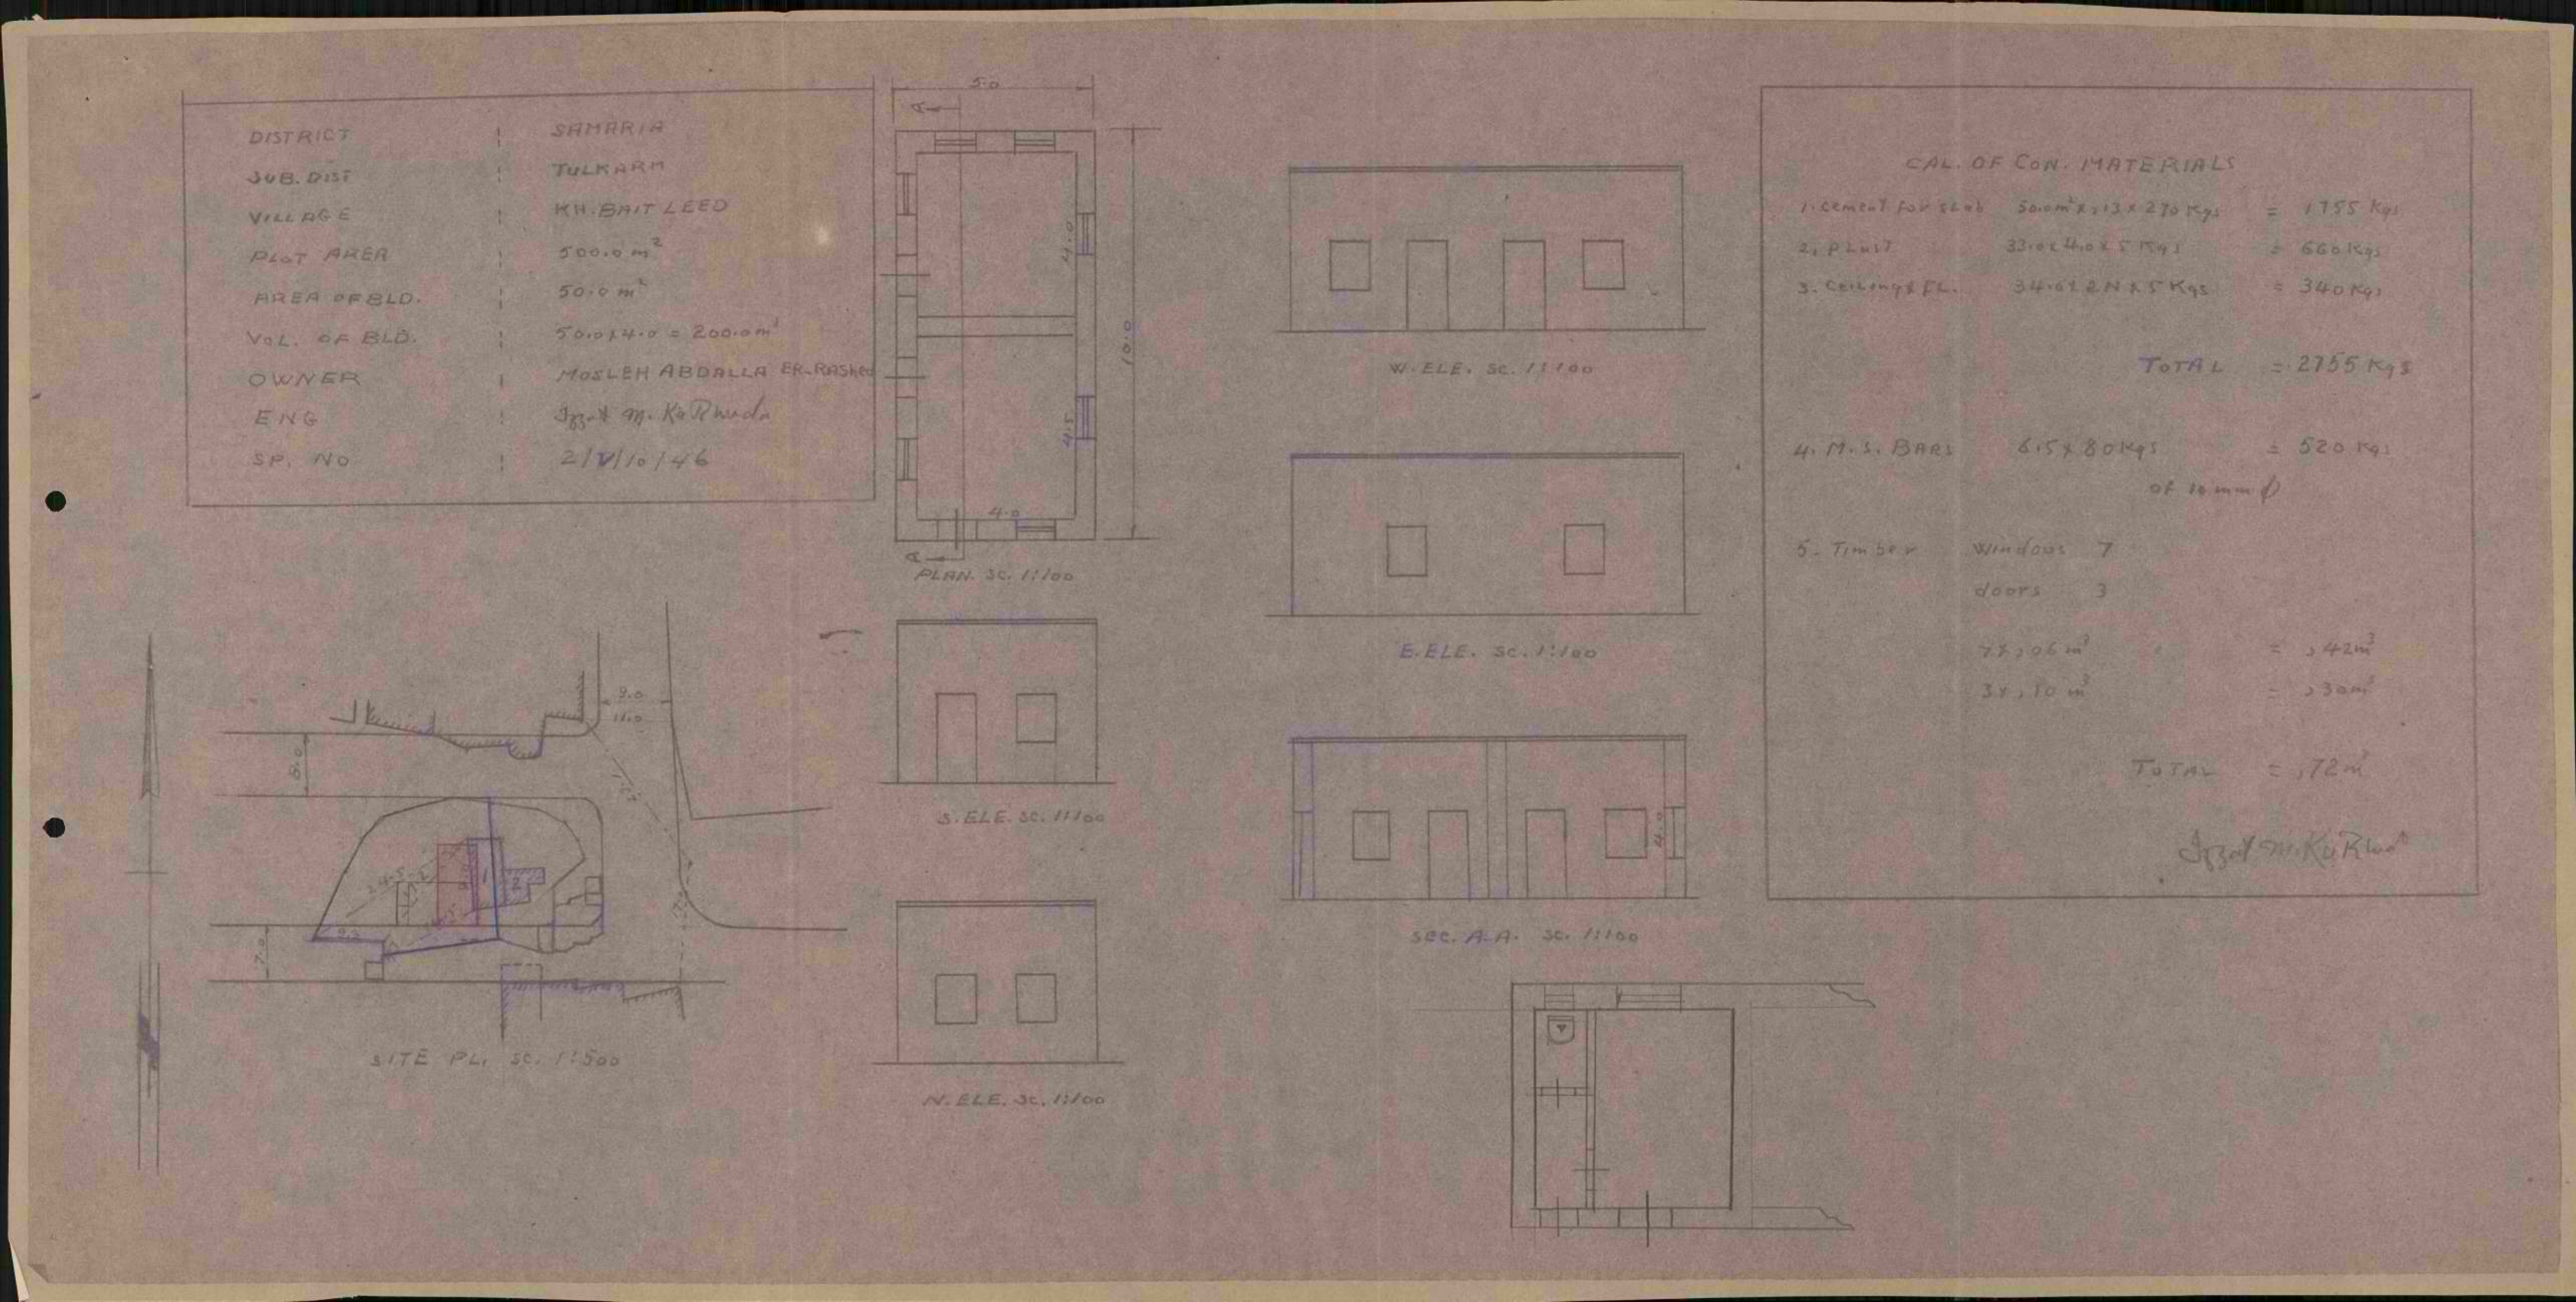 DISTRICT : SAMARIA
SUB. DIST : TULKARM
VILLAGE : KH. BAIT LEED
PLOT AREA : 500.0 m²
AREA OF BLD. : 50.0 m²
VOL. OF BLD. : 50.0 x 4.0 = 200.0 m³
OWNER : MOSLEH ABDALLA ER-RASHED
ENG : Izzat M.
SP. NO : 2/V/10/46
5.0
A
4.0
10.0
4.5
4.0
A
PLAN. SC. 1:100
W. ELE. SC. 1:100
E. ELE. SC. 1:100
S. ELE. SC. 1:100
4.0
SEC. A-A. SC. 1:100
N. ELE. SC. 1:100
9.0
11.0
8.0
24.5
1
2
7.0
SITE PL. SC. 1:500
CAL. OF CON. MATERIALS
1. Cement for slab 50.0m² x ,13 x 270 Kgs = 1755 Kgs
2. PLAST 33.0 x 4.0 x 5 Kgs = 660 Kgs
3. Ceiling & FL. 34.0 x 2N x 5 Kgs = 340 Kgs
TOTAL = 2755 Kgs
4. M.S. BARS 6.5 x 80 Kgs = 520 Kgs
of 10 mm ϕ
5. Timber Windows 7
doors 3
7 x ,06 m³ = ,42 m³
3 x ,10 m³ = ,30 m³
TOTAL = ,72 m³
Izzat M.